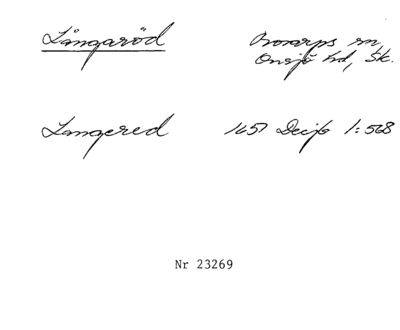 Långaröd Bosarps sn,
Onsjö hd, Sk.
Langered 1651 Decif 1:568
Nr 23269